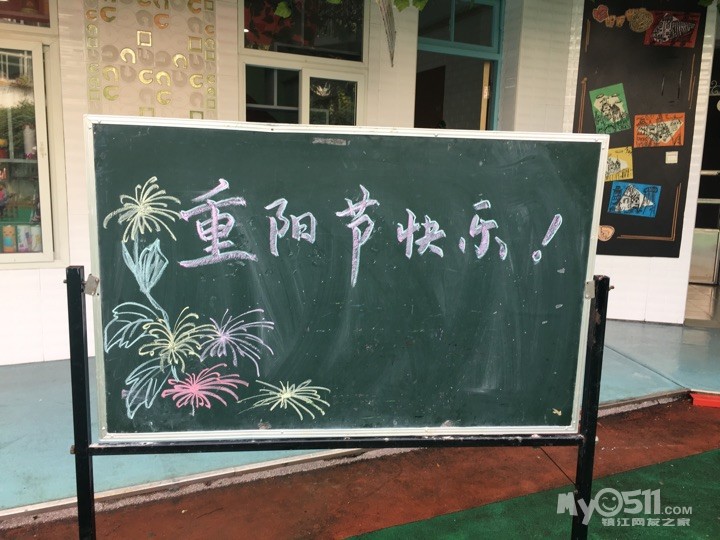 重阳节快乐！
My0511.COM
镇江网友之家